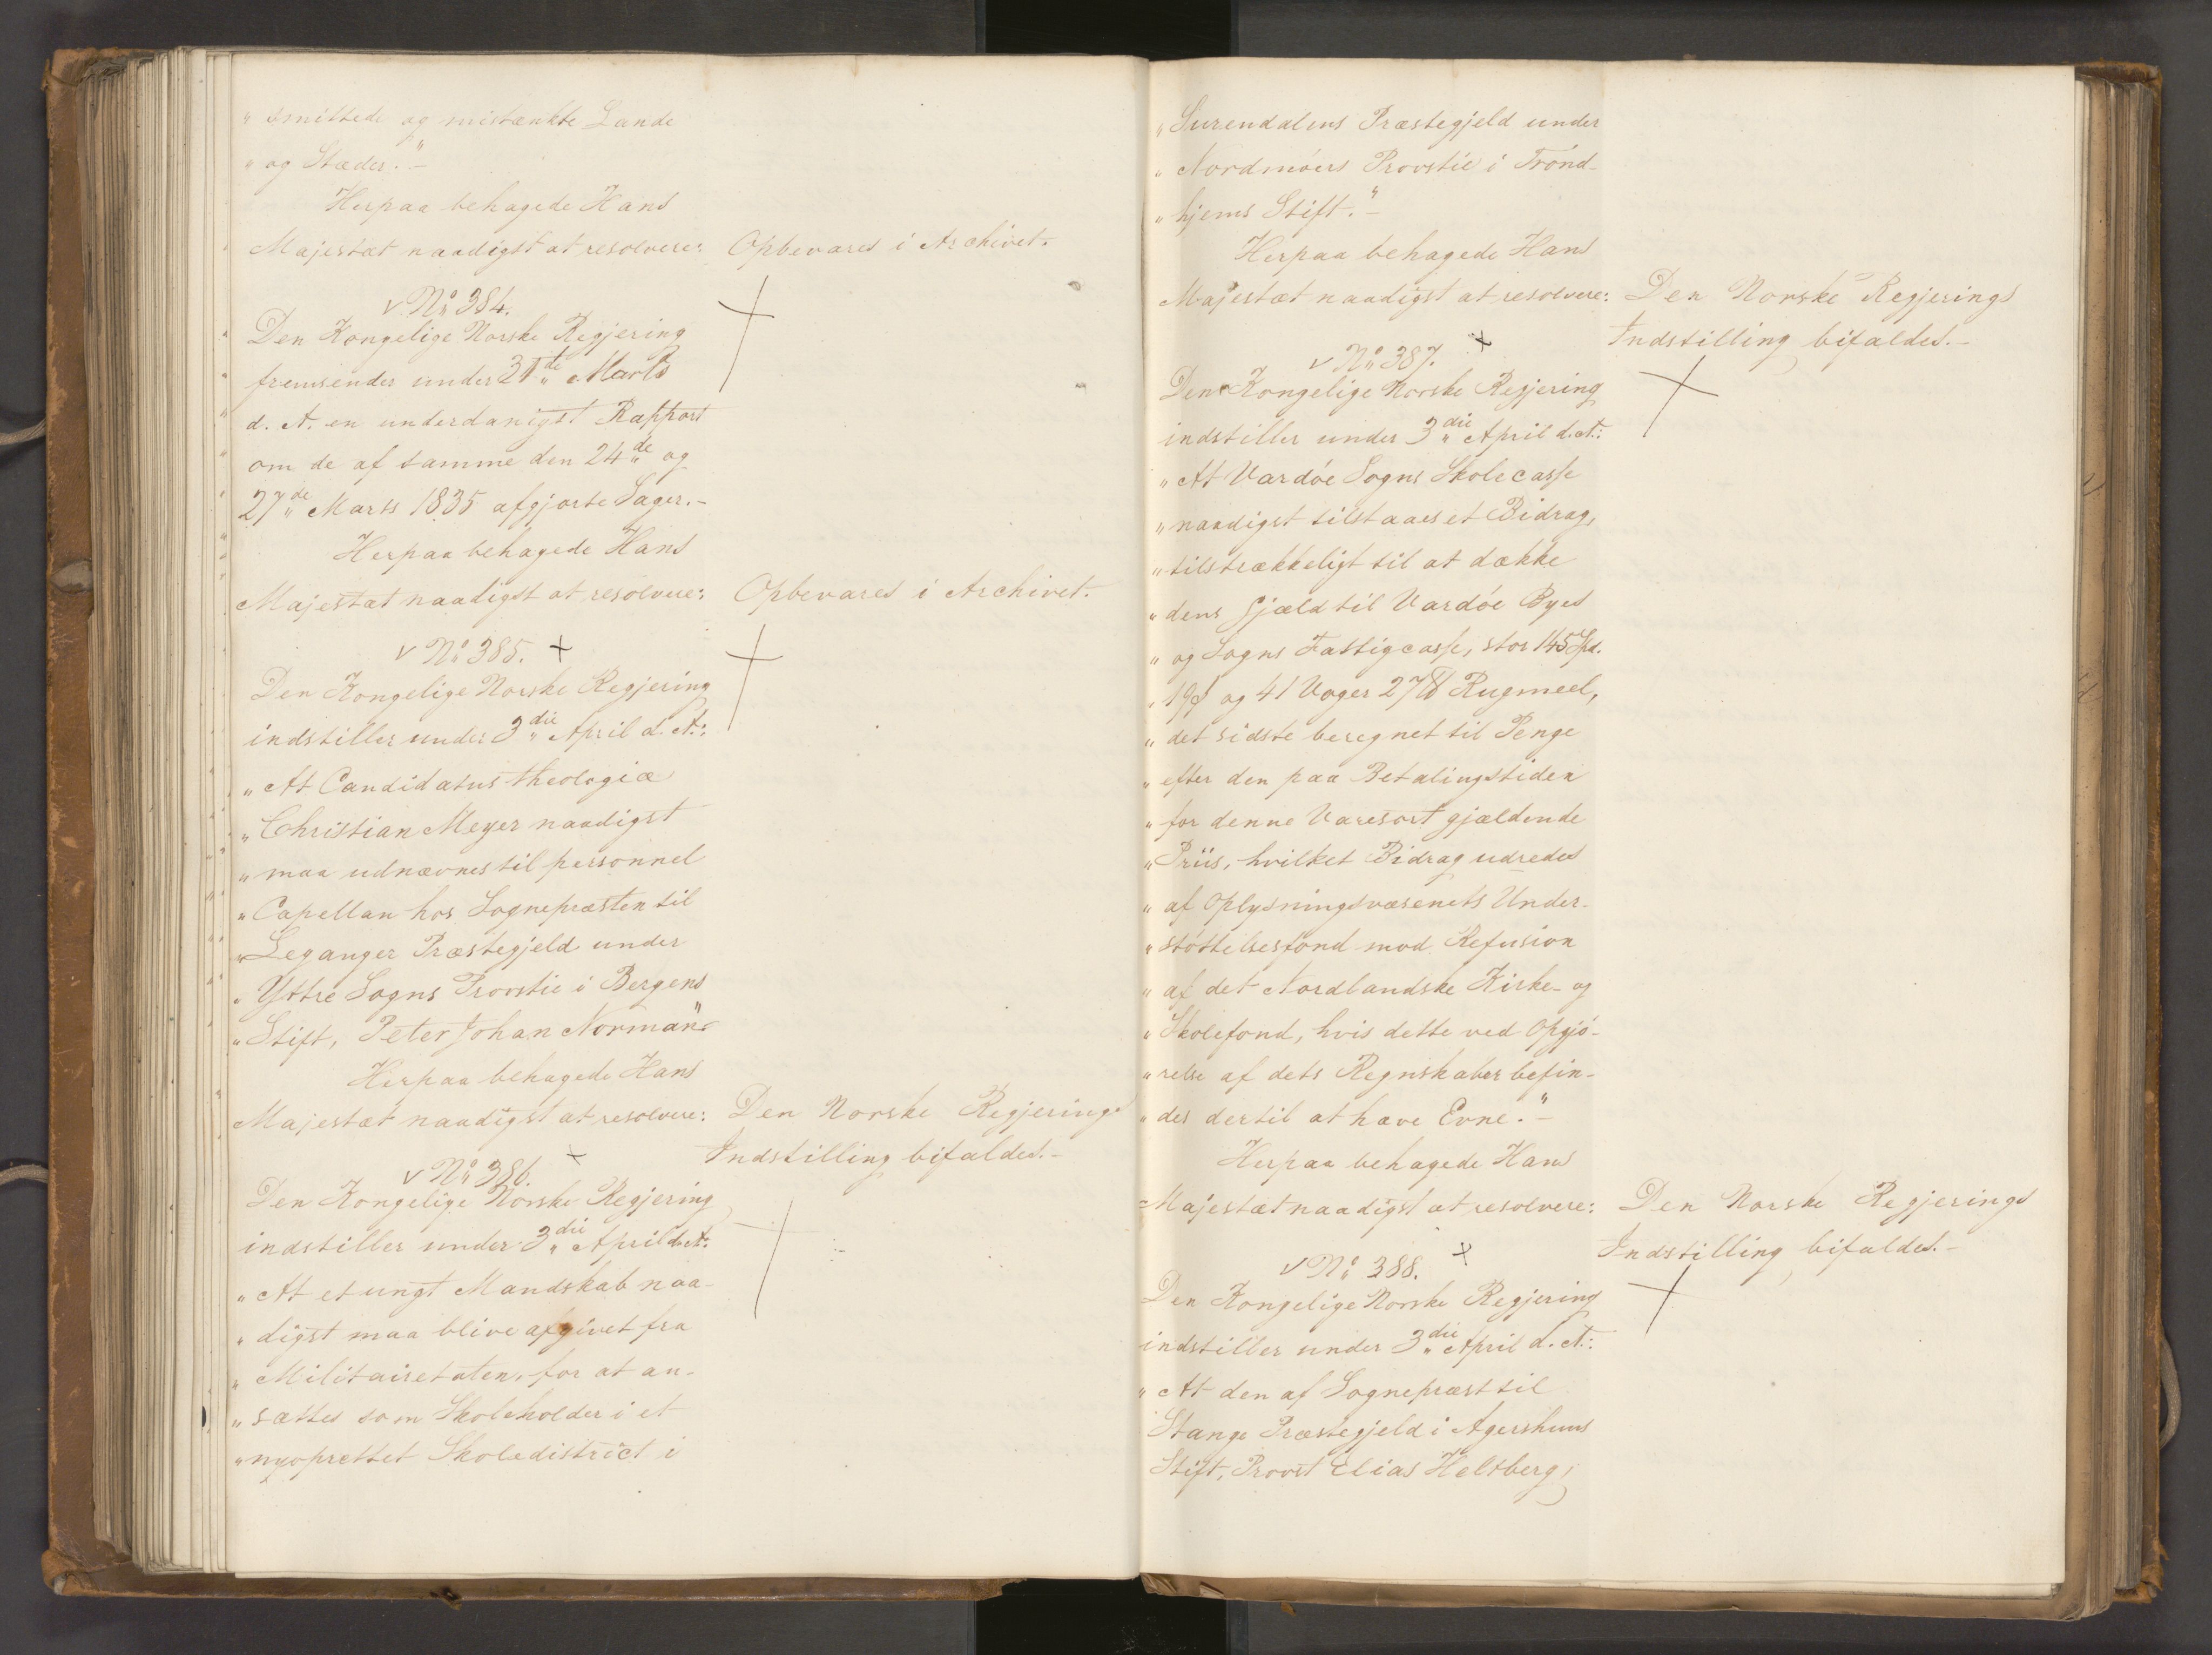 „smittede og mistænkte Lande
„og Stæder.“-
Herpaa behagede Hans
Majestæt naadigst at resolvere: Opbevares i Archivet.
v No 384.
Den Kongelige Norske Regjering
fremsender under 31te Marts
d. A. en underdanigst Rapport
om de af samme den 24de og
27de Marts 1835 afgjorte Sager.-
Herpaa behagede Hans
Majestæt naadigst at resolvere: Opbevares i Archivet.
v No 385. +
Den Kongelige Norske Regjering
indstiller under 3die April d. A.:
„At Candidatus theologiæ
„Christian Meyer naadigst
„maa udnævnes til personnel
„Capellan hos Sognepræsten til
„Leganger Præstegjeld under
„Yttre Sogns Provstie i Bergens
„Stift, Peter Johan Norman“
Herpaa behagede Hans
Majestæt naadigst at resolvere: Den Norske Regjerings
Indstilling bifaldes.-
v No 386. +
Den Kongelige Norske Regjering
indstiller under 3die April d. A.:
„At et ungt Mandskab naa-
„digst maa blive afgivet fra
„Militairetaten, for at an-
„sættes som Skoleholder i et
„nyoprettet Skoledistrict i
„Surendalens Præstegjeld under
„Nordmøers Provstie i Trond-
„hjems Stift.“-
Herpaa behagede Hans
Majestæt naadigst at resolvere: Den Norske Regjerings
Indstilling bifaldes.-
v No 387. +
Den Kongelige Norske Regjering
indstiller under 3die April d. A.:
„At Vardøe Sogns Skolecasse
„naadigst tilstaaes et Bidrag,
„tilstrækkeligt til at dække
„dens Gjæld til Vardøe Byes
„og Sogns Fattigcasse, stor 145 Spd.
„19 ß og 41 Voger 27 ℔ Rugmeel,
„det sidste beregnet til Penge
„efter den paa Betalingstiden
„for denne Varesort gjældende
„Priis, hvilket Bidrag udredes
„af Oplysningsvæsenets Under-
„støttelsesfond mod Refusion
„af det Nordlandske Kirke- og
„Skolefond, hvis dette ved Opgjø-
„relse af dets Regnskaber befin-
„des dertil at have Evne.“-
Herpaa behagede Hans
Majestæt naadigst at resolvere: Den Norske Regjerings
Indstilling bifaldes.-
v No 388. +
Den Kongelige Norske Regjering
indstiller under 3die April d. A.:
„At den af Sognepræst til
Stange Præstegjeld i Agershuus
Stift, Provst Elias Heltberg,